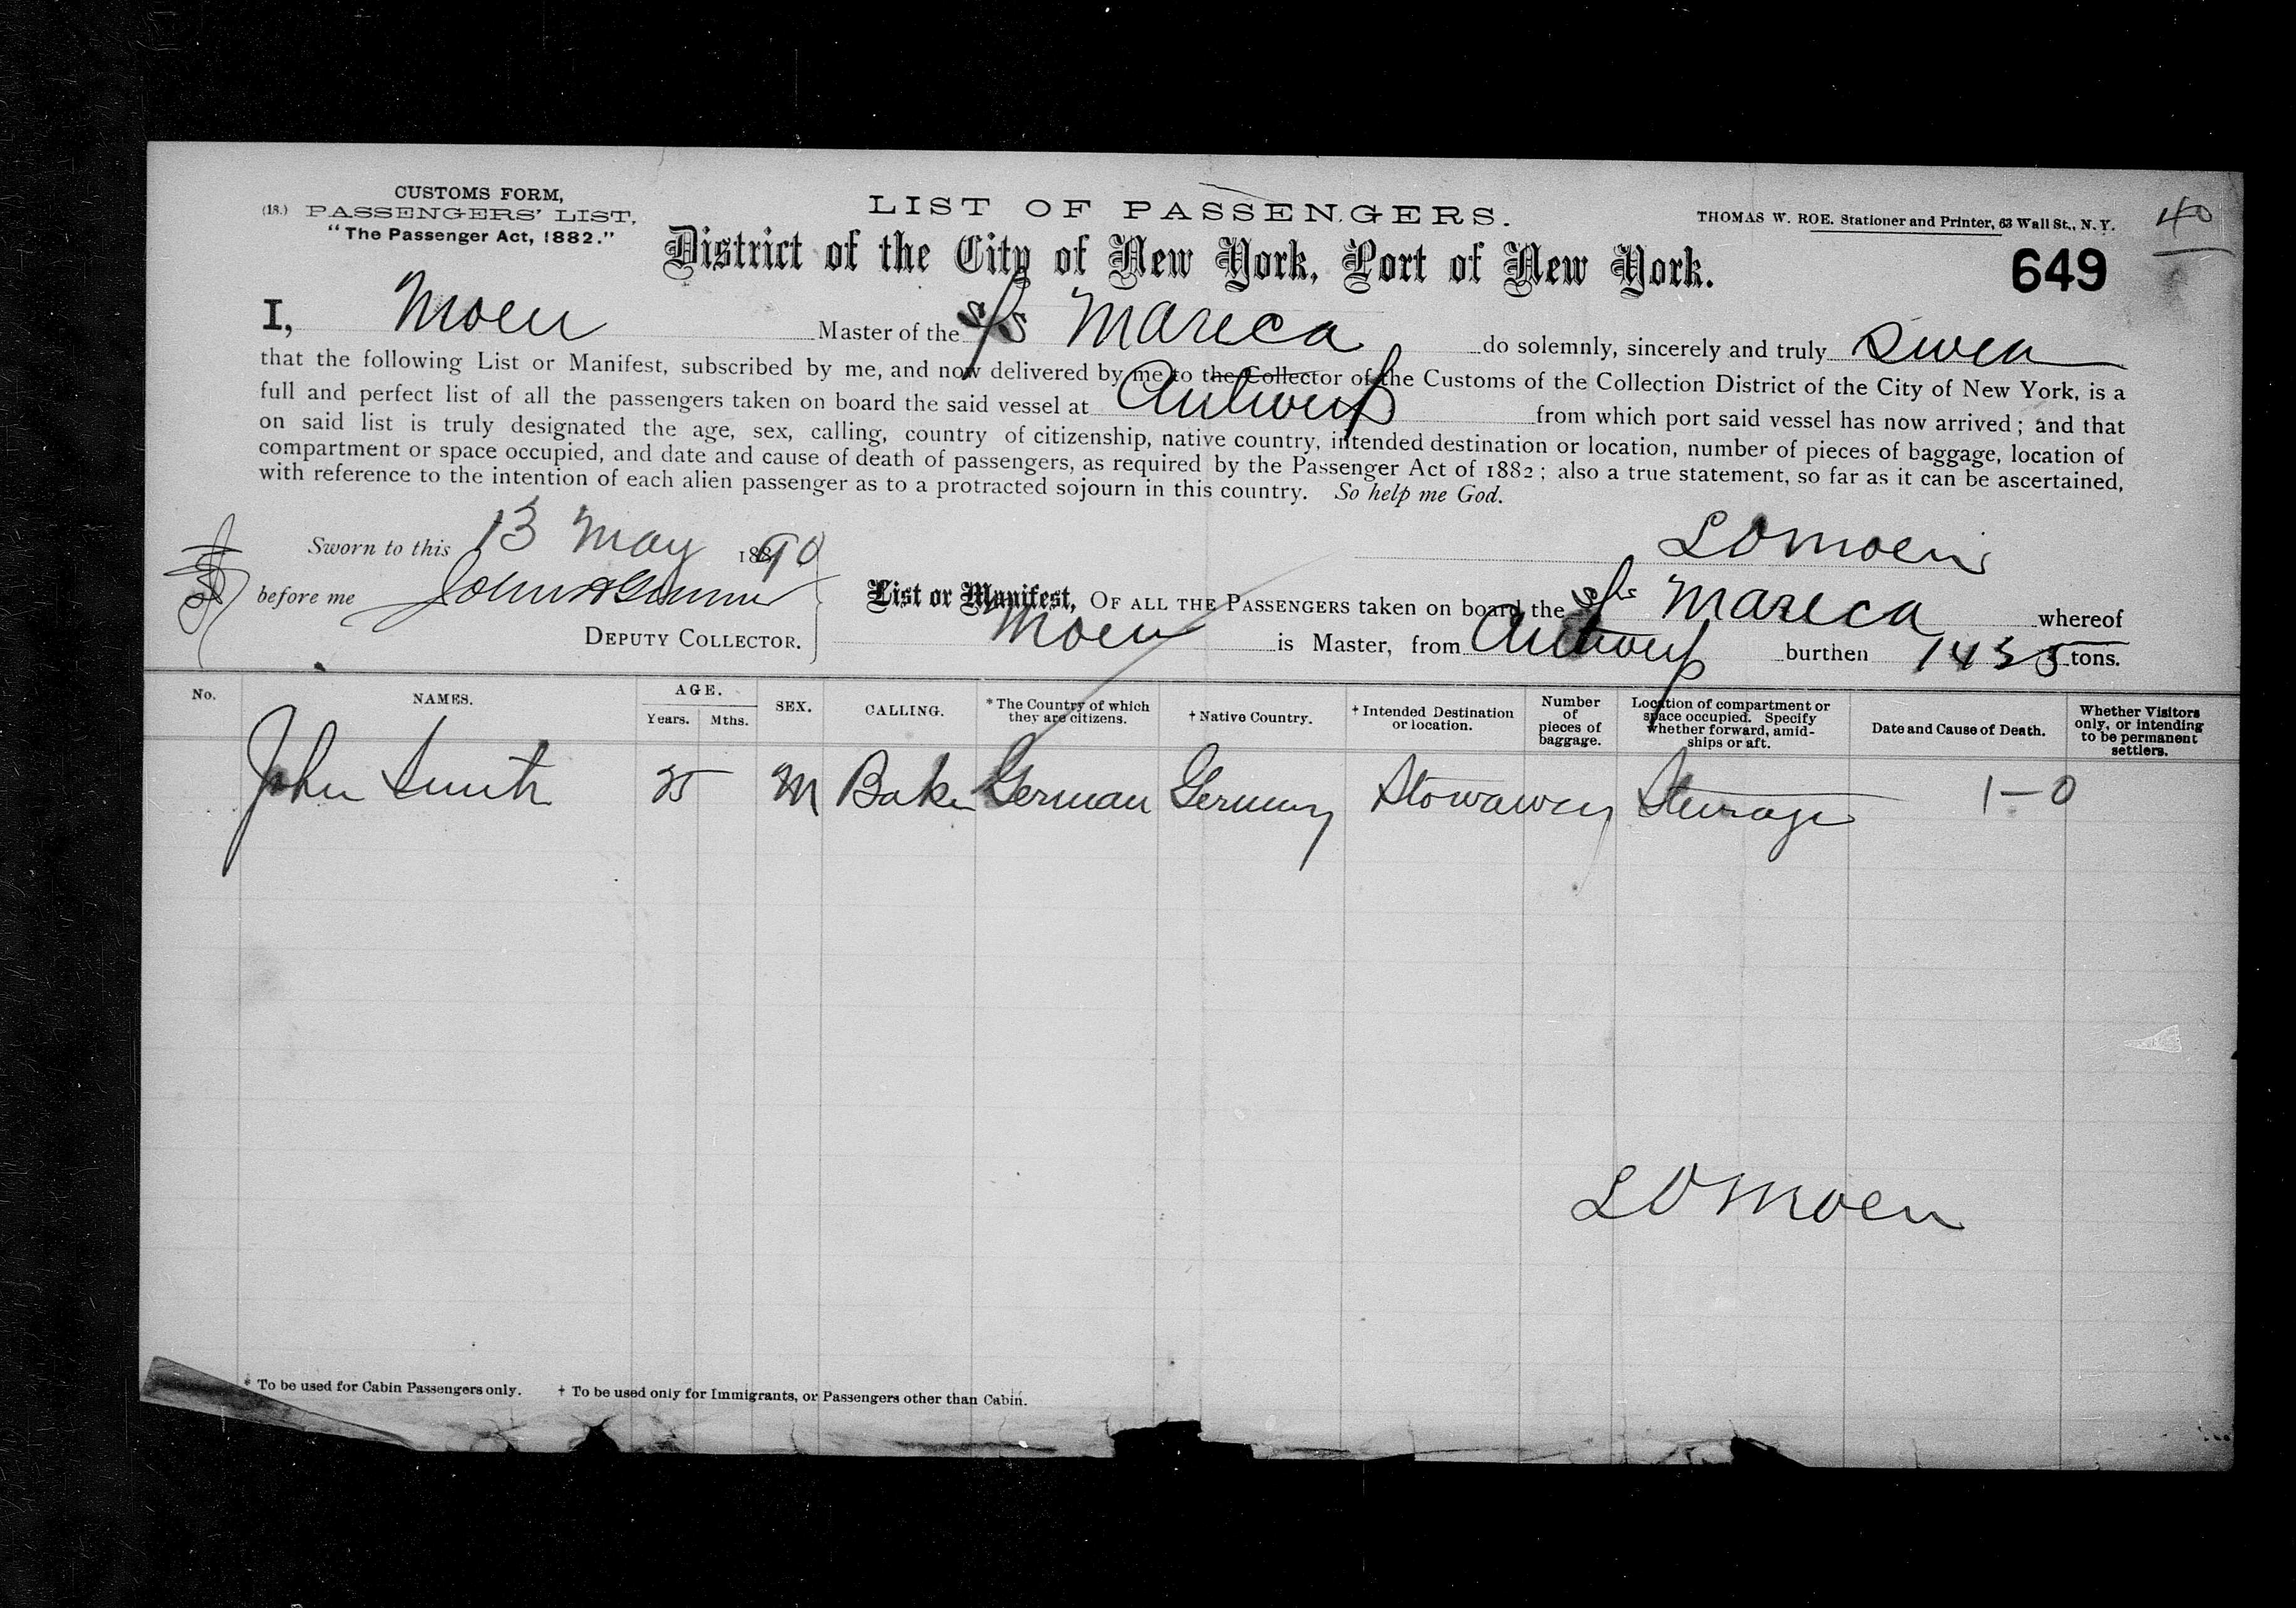 CUSTOMS FORM,
(18.) PASSENGERS' LIST,
"The Passenger Act, 1882."
LIST OF PASSENGERS.
THOMAS W. ROE. Stationer and Printer, 63 Wall St., N. Y.
40
District of the City of New York, Port of New York.
649
I, Moen Master of the S/S Mareca do solemnly, sincerely and truly Swear
that the following List or Manifest, subscribed by me, and now delivered by me to the Collector of the Customs of the Collection District of the City of New York, is a
full and perfect list of all the passengers taken on board the said vessel at Antwerp from which port said vessel has now arrived; and that
on said list is truly designated the age, sex, calling, country of citizenship, native country, intended destination or location, number of pieces of baggage, location of
compartment or space occupied, and date and cause of death of passengers, as required by the Passenger Act of 1882; also a true statement, so far as it can be ascertained,
with reference to the intention of each alien passenger as to a protracted sojourn in this country. So help me God.
Sworn to this 13 May 1890
L O Moen
before me John
DEPUTY COLLECTOR.
List or Manifest, OF ALL THE PASSENGERS taken on board the S/S Mareca whereof
Moen is Master, from Antwerp burthen 1435 tons.
No.
NAMES.
AGE.
Years. Mths.
SEX.
CALLING.
* The Country of which
they are citizens.
† Native Country.
† Intended Destination
or location.
Number
of
pieces of
baggage.
Location of compartment or
space occupied. Specify
whether forward, amid-
ships or aft.
Date and Cause of Death.
Whether Visitors
only, or intending
to be permanent
settlers.
John Smith 25 M Baker German Germany Stowaway Steerage 1-0
L O Moen
* To be used for Cabin Passengers only. † To be used only for Immigrants, or Passengers other than Cabin.